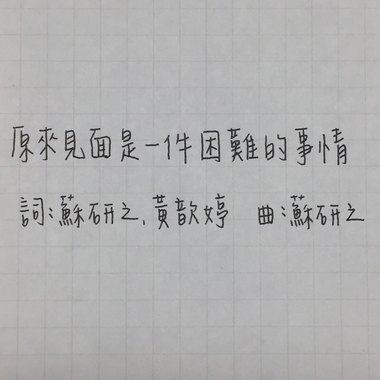 原來見面是一件困難的事情
詞:蘇研之、黃歆婷 曲:蘇研之